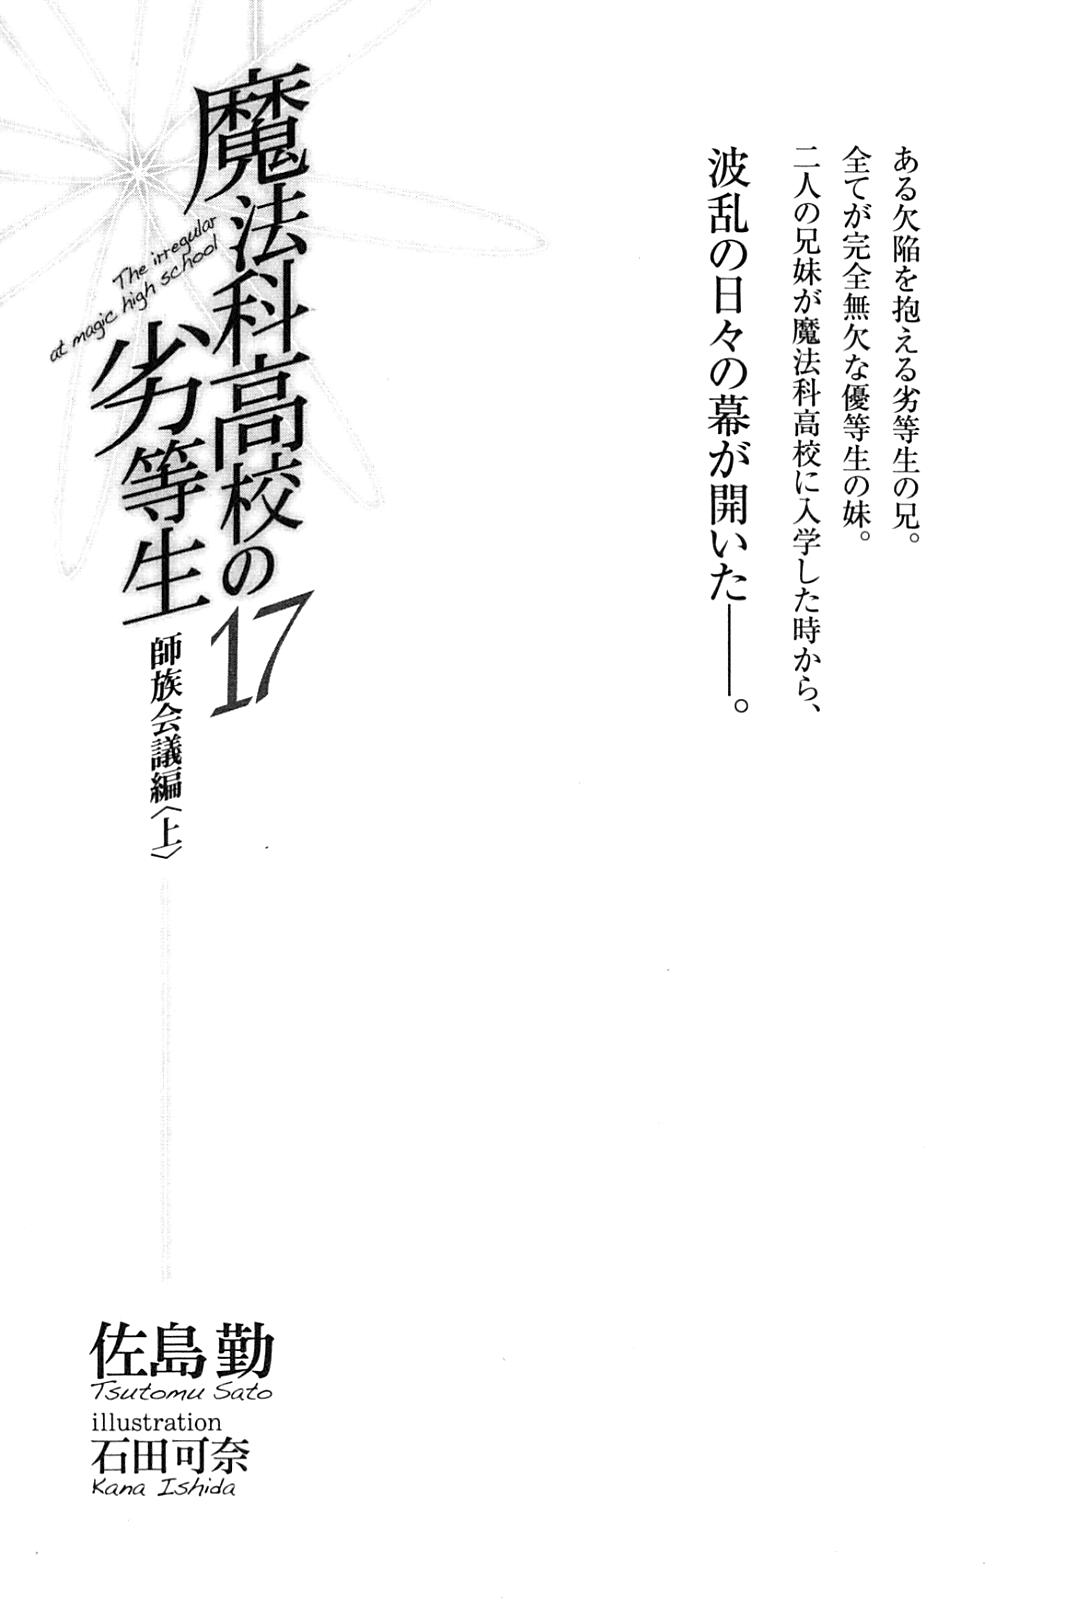 ある欠陥を抱える劣等生の兄。
全てが完全無欠な優等生の妹。
二人の兄妹が魔法科高校に入学した時から、
波乱の日々の幕が開いた――。
魔法科高校の
劣等生
17
The irregular
at magic high school
師族会議編〈上〉
佐島 勤
Tsutomu Sato
illustration
石田可奈
Kana Ishida